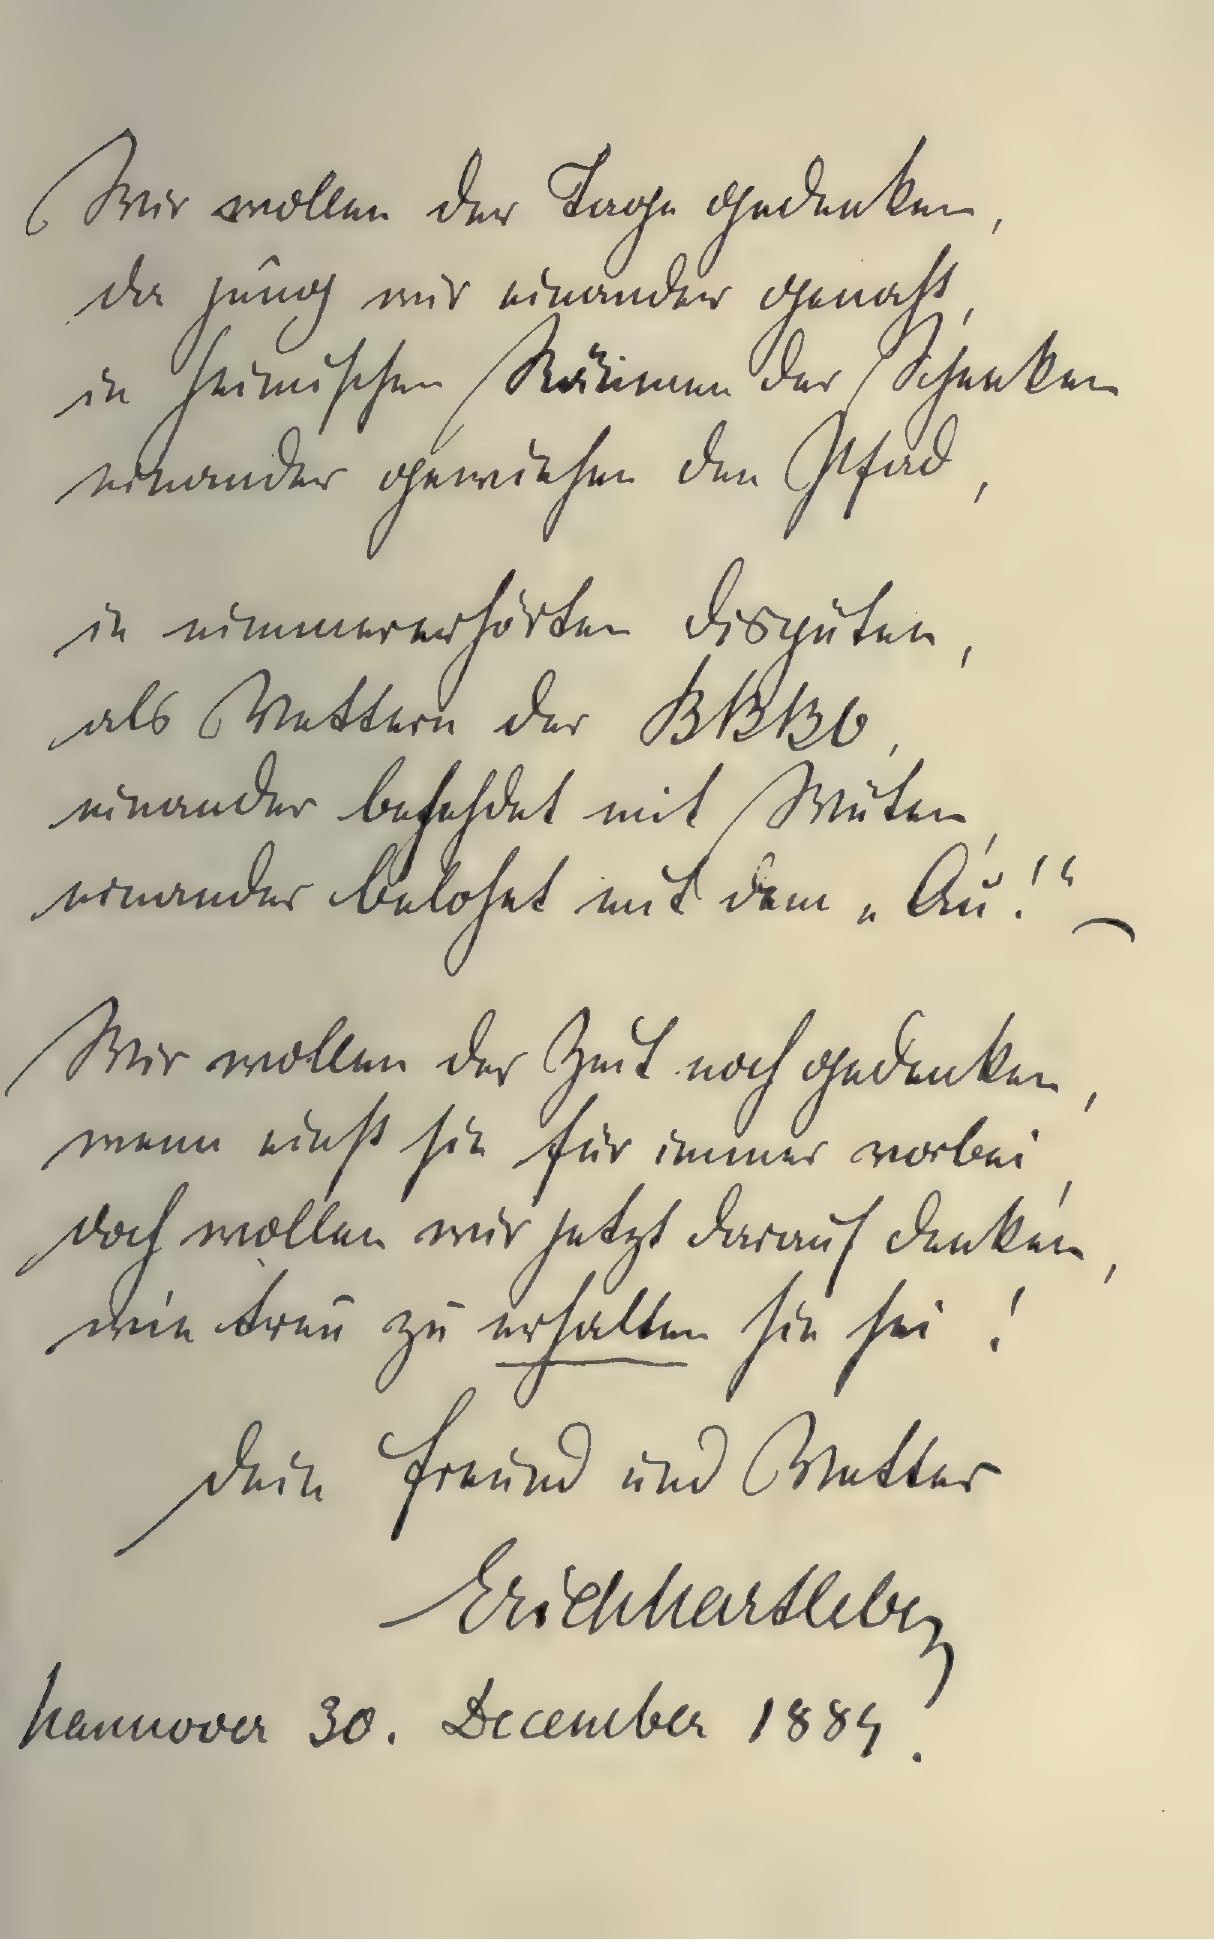 Wir wollen der Tage gedenken,
da jung wir einander genaht,
in heimischen Räumen der Schenken
einander gewiesen den Pfad,
in nimmererhörten Disputen,
als Vettern der BBBb,
einander befehdet mit Wuten,
einander belohnt mit dem „Au!“ –
Wir wollen der Zeit noch gedenken,
wenn einst sie für immer vorbei,
doch wollen wir jetzt darauf denken,
wie treu zu erhalten sie sei!
Dein Freund und Vetter
Erich Hartleben
Hannover 30. December 1884.